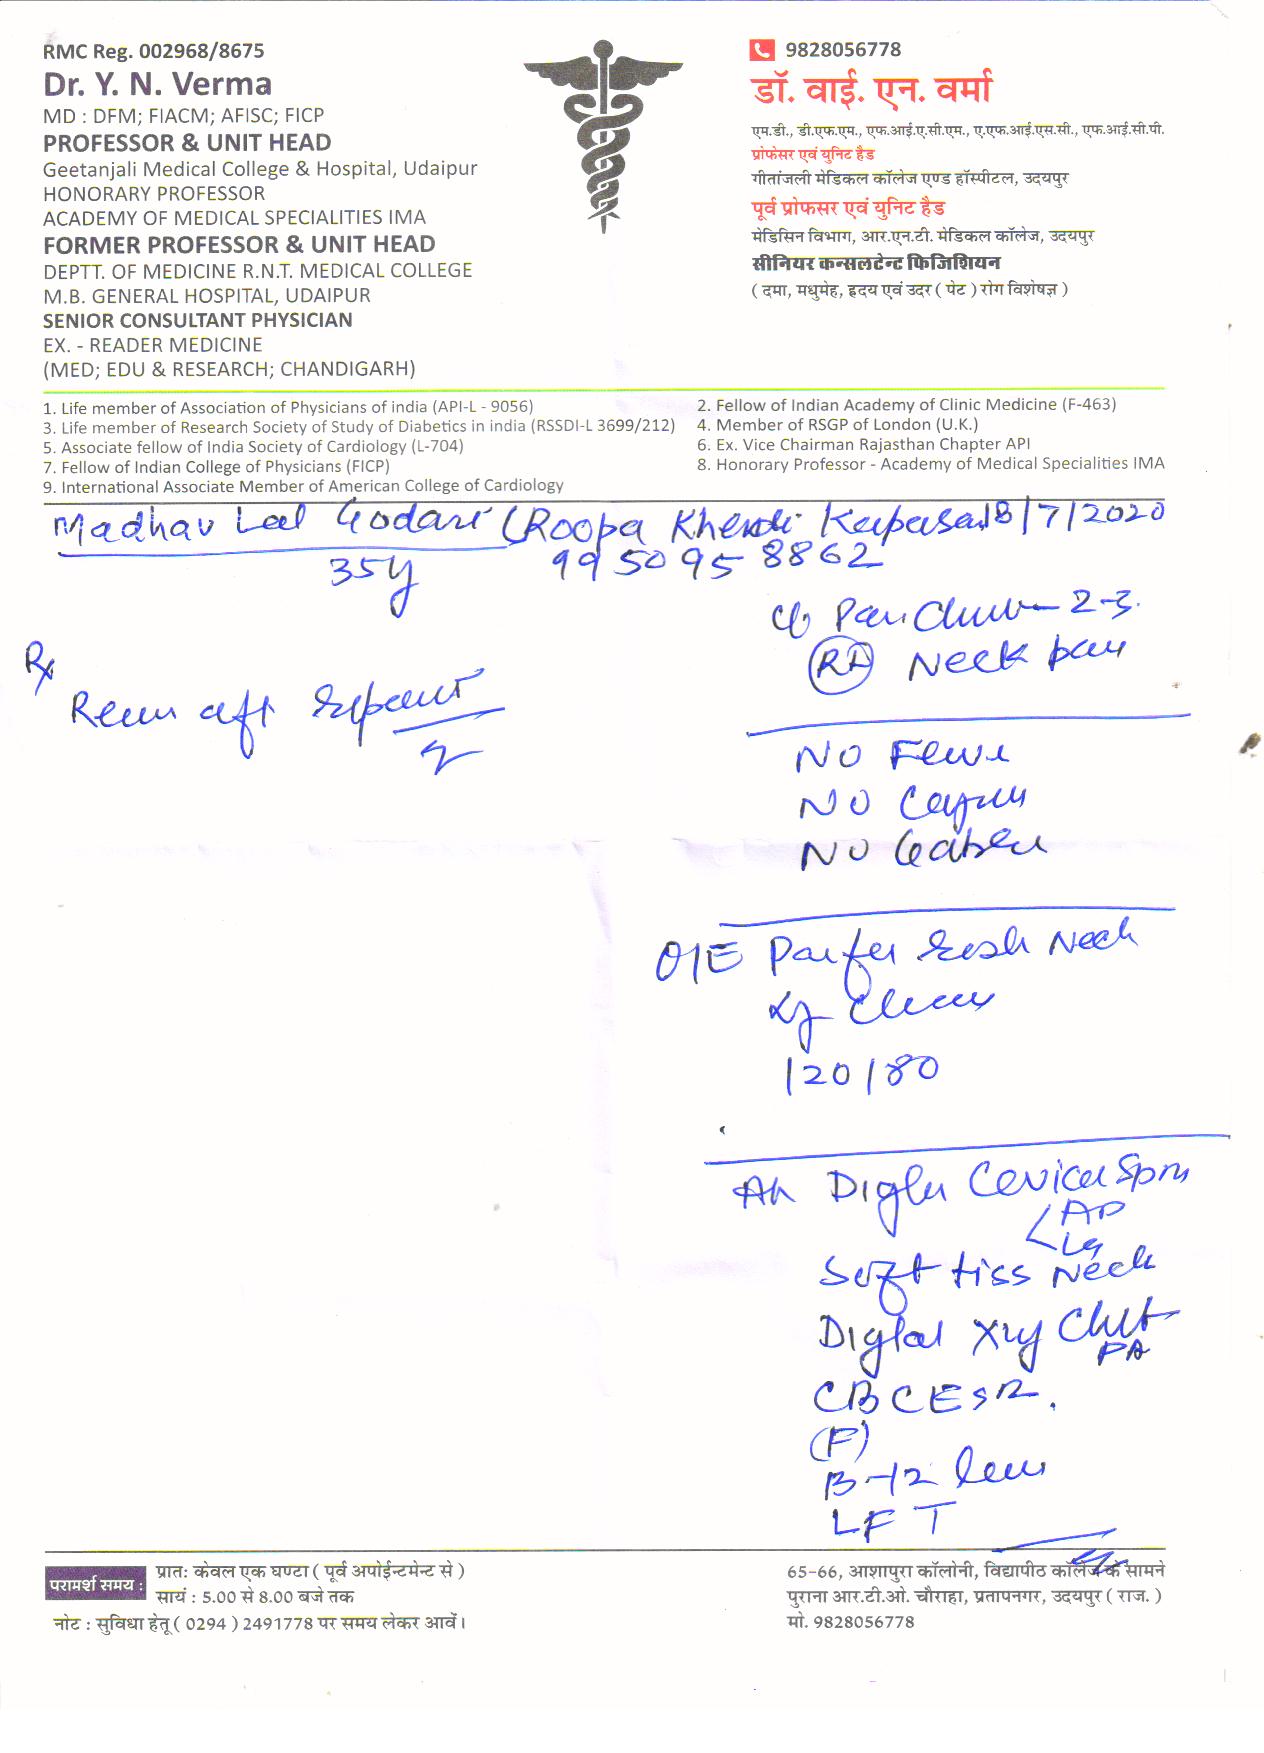 RMC Reg. 002968/8675
Dr. Y. N. Verma
MD : DFM; FIACM; AFISC; FICP
PROFESSOR & UNIT HEAD
Geetanjali Medical College & Hospital, Udaipur
HONORARY PROFESSOR
ACADEMY OF MEDICAL SPECIALITIES IMA
FORMER PROFESSOR & UNIT HEAD
DEPTT. OF MEDICINE R.N.T. MEDICAL COLLEGE
M.B. GENERAL HOSPITAL, UDAIPUR
SENIOR CONSULTANT PHYSICIAN
EX. - READER MEDICINE
(MED; EDU & RESEARCH; CHANDIGARH)
9828056778
डॉ. वाई. एन. वर्मा
एम.डी., डी.एफ.एम., एफ.आई.ए.सी.एम., ए.एफ.आई.एस.सी., एफ.आई.सी.पी.
प्रोफेसर एवं युनिट हैड
गीतांजली मेडिकल कॉलेज एण्ड हॉस्पीटल, उदयपुर
पूर्व प्रोफसर एवं युनिट हैड
मेडिसिन विभाग, आर.एन.टी. मेडिकल कॉलेज, उदयपुर
सीनियर कन्सलटेन्ट फिजिशियन
( दमा, मधुमेह, ह्रदय एवं उदर ( पेट ) रोग विशेषज्ञ )
1. Life member of Association of Physicians of india (API-L - 9056)
2. Fellow of Indian Academy of Clinic Medicine (F-463)
3. Life member of Research Society of Study of Diabetics in india (RSSDI-L 3699/212)
4. Member of RSGP of London (U.K.)
5. Associate fellow of India Society of Cardiology (L-704)
6. Ex. Vice Chairman Rajasthan Chapter API
7. Fellow of Indian College of Physicians (FICP)
8. Honorary Professor - Academy of Medical Specialities IMA
9. International Associate Member of American College of Cardiology
Madhav Lal Godari (Roopa Khedi Kapasan 18/7/2020
35y 9950958862
2-3.
Neck pain
Rx
NO Fever
NO
NO
O/E Neck
120/80
Digital Cervical Spine
AP
Soft tiss Neck
Digital Xray Chest
PA
CBC ESR.
(F)
B-12 level
LFT
परामर्श समय :
प्रातः केवल एक घण्टा ( पूर्व अपोईन्टमेन्ट से )
सायं : 5.00 से 8.00 बजे तक
नोट : सुविधा हेतू ( 0294 ) 2491778 पर समय लेकर आवें।
65-66, आशापुरा कॉलोनी, विद्यापीठ कॉलेज के सामने
पुराना आर.टी.ओ. चौराहा, प्रतापनगर, उदयपुर ( राज. )
मो. 9828056778